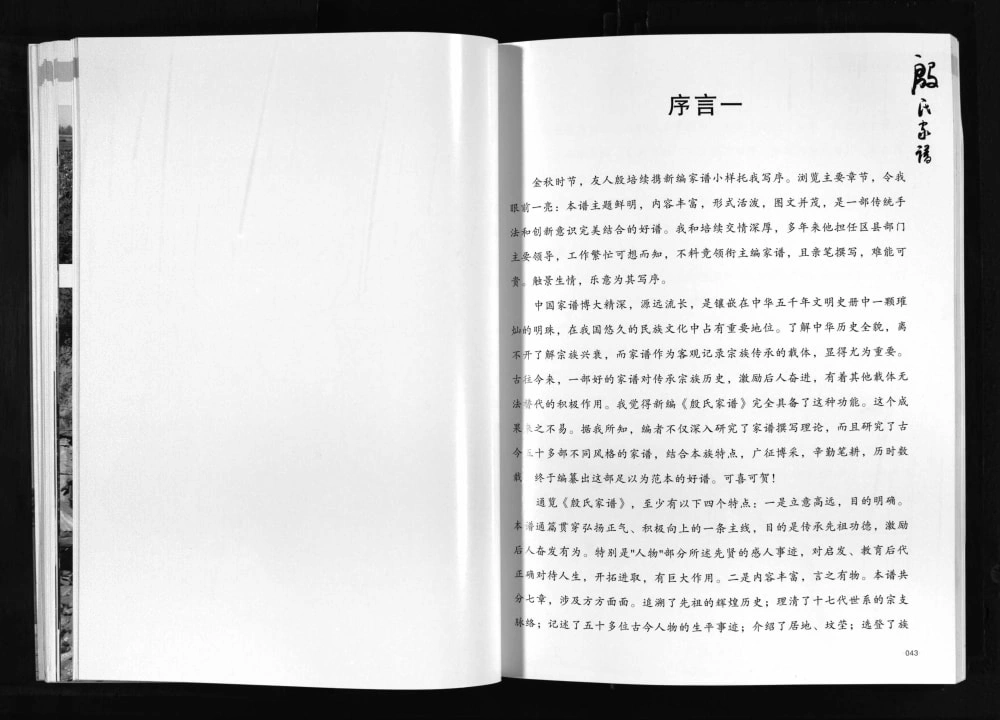 殷氏家谱
序言一
金秋时节，友人殷培续携新编家谱小样托我写序。浏览主要章节，令我
眼前一亮：本谱主题鲜明，内容丰富，形式活泼，图文并茂，是一部传统手
法和创新意识完美结合的好谱。我和培续交情深厚，多年来他担任区县部门
主要领导，工作繁忙可想而知，不料竟领衔主编家谱，且亲笔撰写，难能可
贵。触景生情，乐意为其写序。
中国家谱博大精深，源远流长，是镶嵌在中华五千年文明史册中一颗璀
灿的明珠，在我国悠久的民族文化中占有重要地位。了解中华历史全貌，离
不开了解宗族兴衰，而家谱作为客观记录宗族传承的载体，显得尤为重要。
古往今来，一部好的家谱对传承宗族历史，激励后人奋进，有着其他载体无
法替代的积极作用。我觉得新编《殷氏家谱》完全具备了这种功能。这个成
果来之不易。据我所知，编者不仅深入研究了家谱撰写理论，而且研究了古
今五十多部不同风格的家谱，结合本族特点，广征博采，辛勤笔耕，历时数
载 终于编纂出这部足以为范本的好谱。可喜可贺！
通览《殷氏家谱》，至少有以下四个特点：一是立意高远，目的明确。
本谱通篇贯穿弘扬正气、积极向上的一条主线，目的是传承先祖功德，激励
后人奋发有为。特别是"人物"部分所述先贤的感人事迹，对启发、教育后代
正确对待人生，开拓进取，有巨大作用。二是内容丰富，言之有物。本谱共
分七章，涉及方方面面。追溯了先祖的辉煌历史；理清了十七代世系的宗支
脉络；记述了五十多位古今人物的生平事迹；介绍了居地、坟茔；选登了族
043